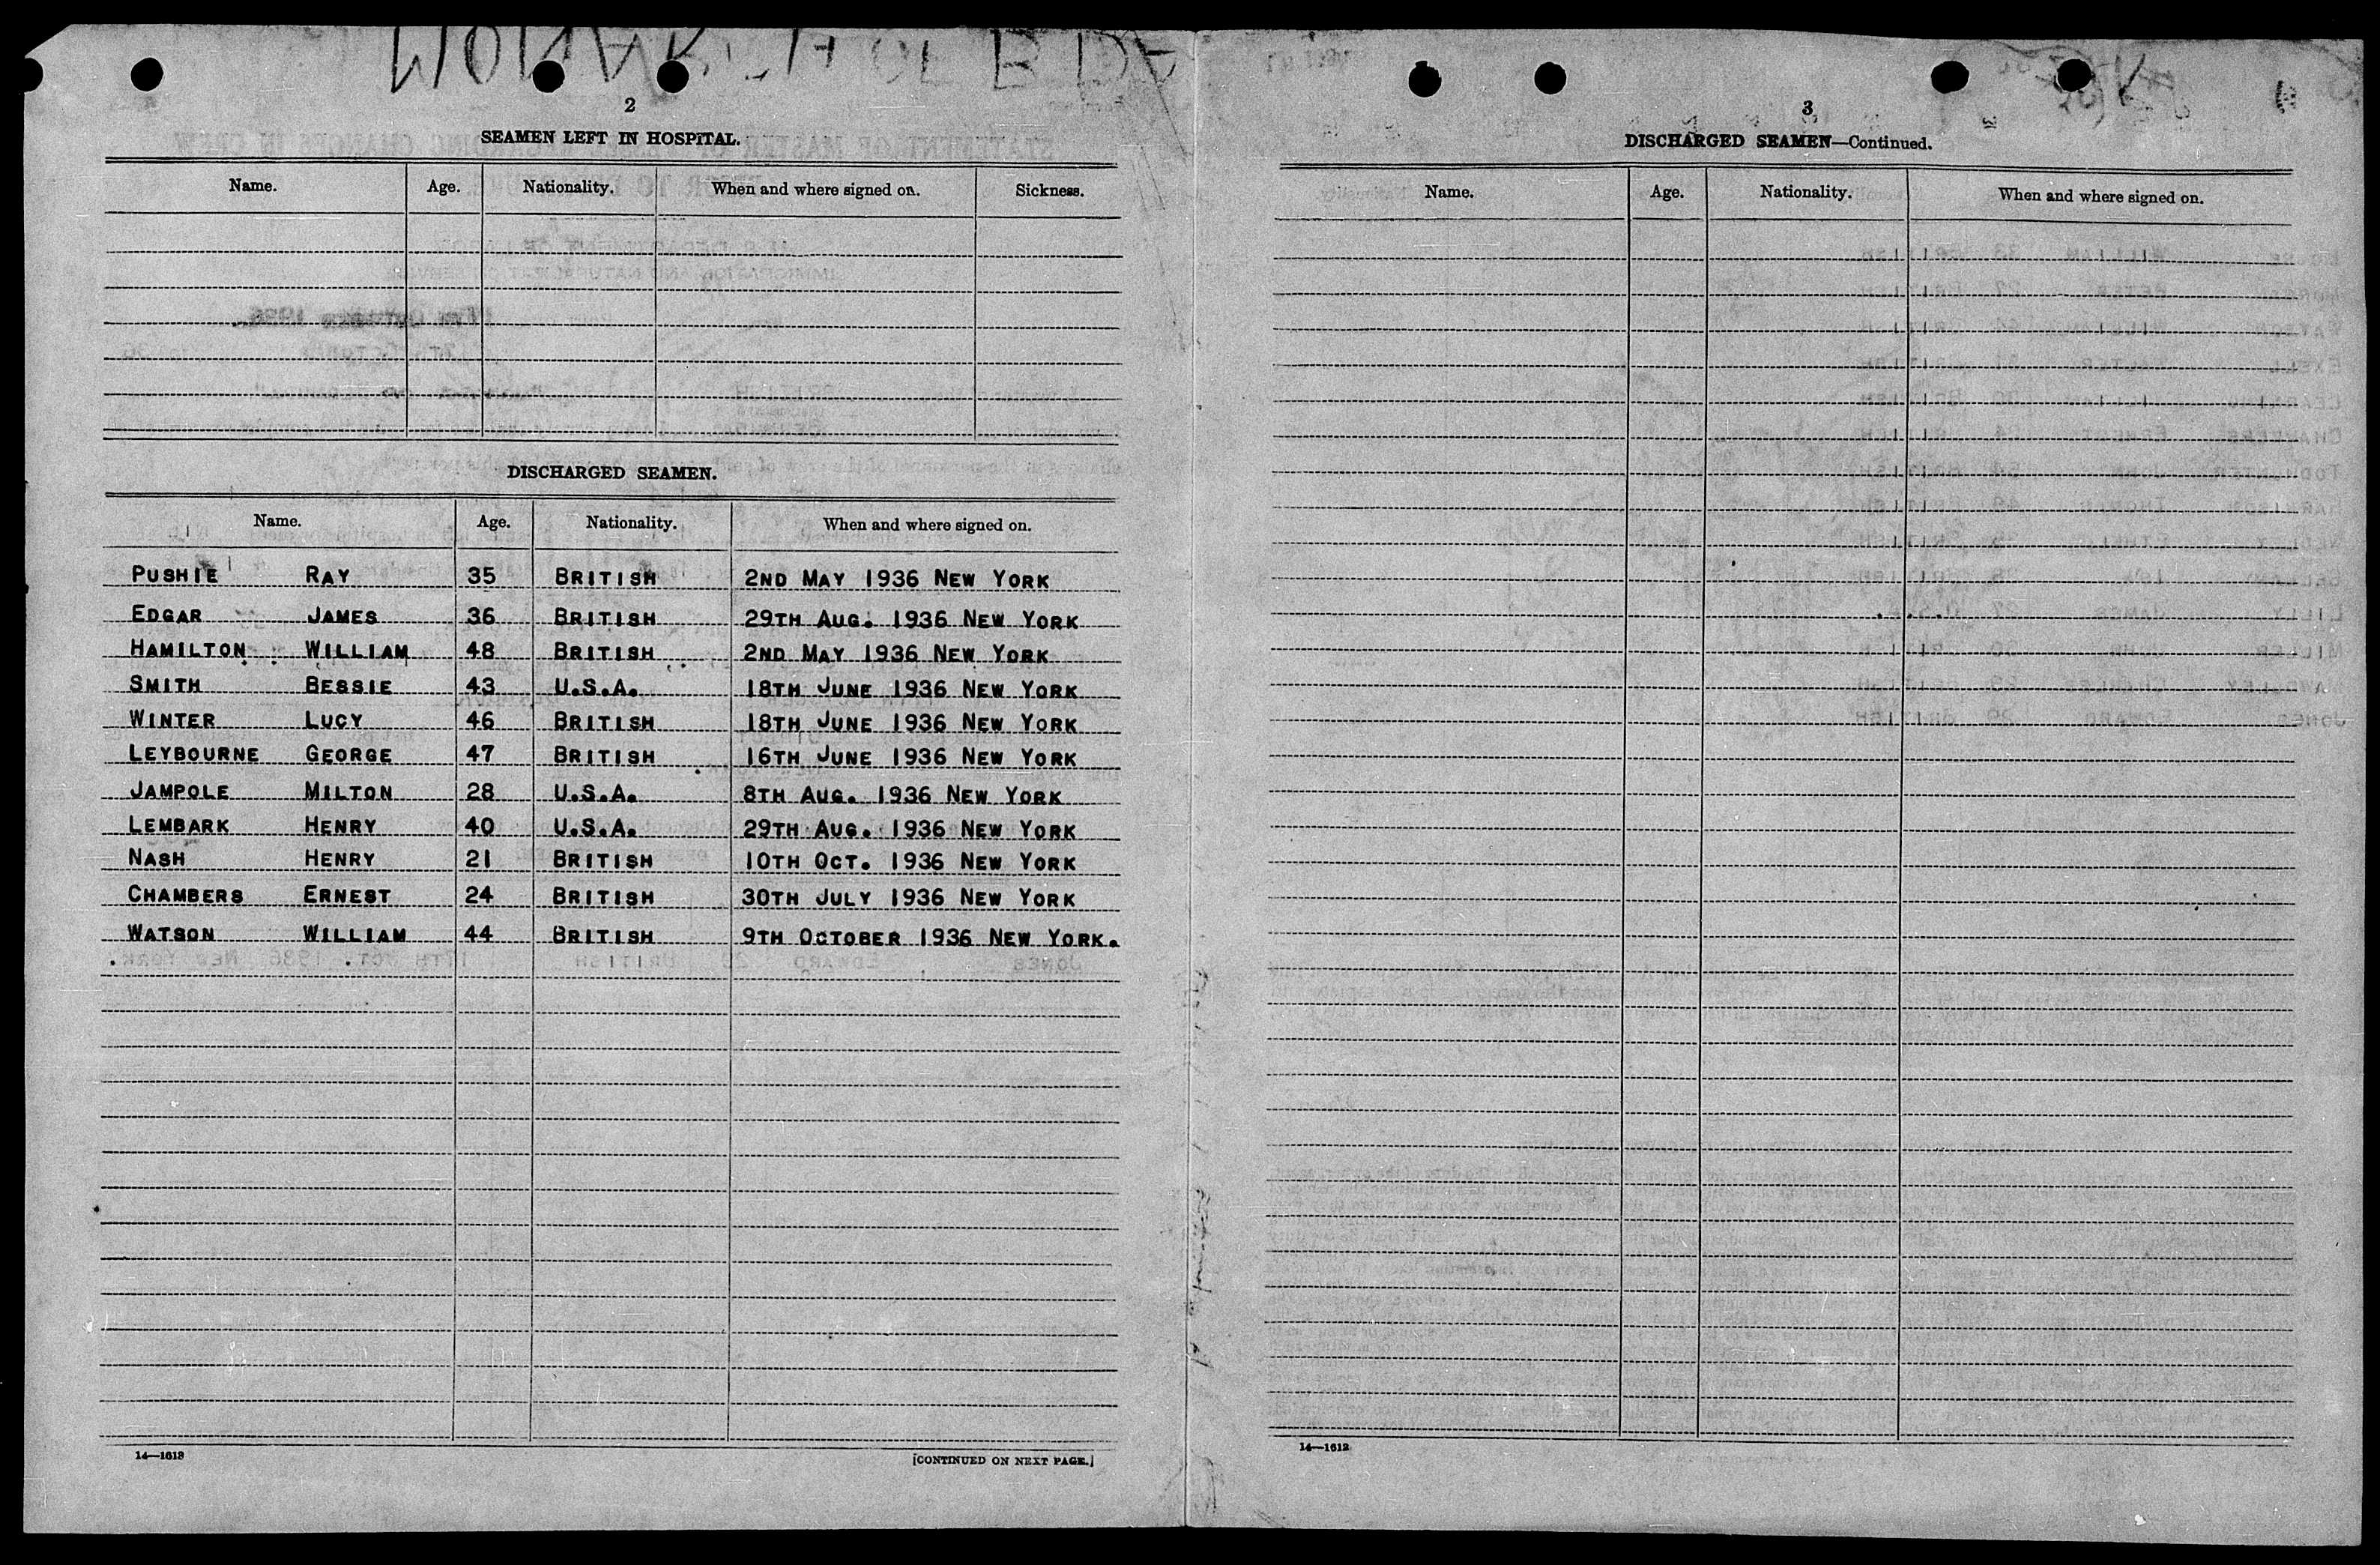 MONARCH OF BDA
2
SEAMEN LEFT IN HOSPITAL.
Name. Age. Nationality. When and where signed on. Sickness.
DISCHARGED SEAMEN.
Name. Age. Nationality. When and where signed on.
PUSHIE RAY 35 BRITISH 2ND MAY 1936 NEW YORK
EDGAR JAMES 36 BRITISH 29TH AUG. 1936 NEW YORK
HAMILTON WILLIAM 48 BRITISH 2ND MAY 1936 NEW YORK
SMITH BESSIE 43 U.S.A. 18TH JUNE 1936 NEW YORK
WINTER LUCY 46 BRITISH 18TH JUNE 1936 NEW YORK
LEYBOURNE GEORGE 47 BRITISH 16TH JUNE 1936 NEW YORK
JAMPOLE MILTON 28 U.S.A. 8TH AUG. 1936 NEW YORK
LEMBARK HENRY 40 U.S.A. 29TH AUG. 1936 NEW YORK
NASH HENRY 21 BRITISH 10TH OCT. 1936 NEW YORK
CHAMBERS ERNEST 24 BRITISH 30TH JULY 1936 NEW YORK
WATSON WILLIAM 44 BRITISH 9TH OCTOBER 1936 NEW YORK.
14—1613
[CONTINUED ON NEXT PAGE.]
3
DISCHARGED SEAMEN—Continued.
Name. Age. Nationality. When and where signed on.
14—1613